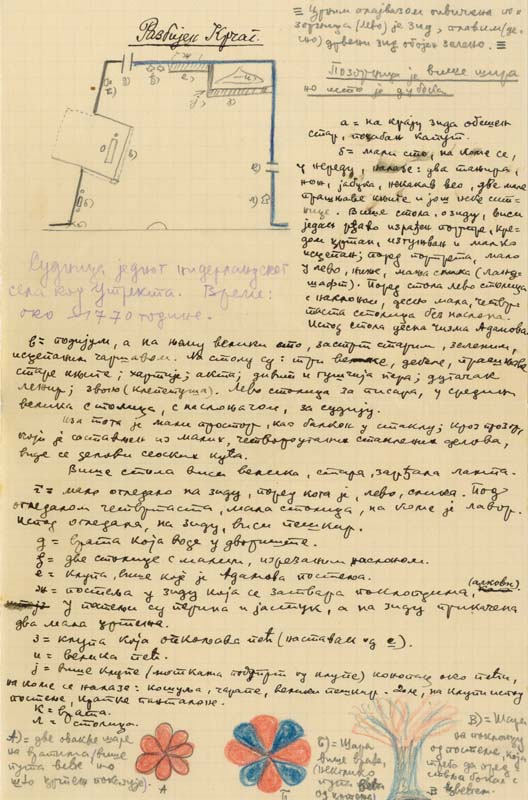 Разбијен Крчаг.
≡ Црном оловком
зорница (лево) је зид, а плавом (де-
сно) дрвени зид обојен зелено. ≡
Позорница је више шира
но што је дубока
а = на крају зида обешен
стар, похабан капут.
б = мали сто, на коме се,
у нереду, налазе: два тањира,
нож, јабука, некакав део, две мале
прашњаве књиге и још неке сит-
нице. Више стола, о зиду, виси
један рђаво израђен портре, кре-
дом цртан, изгужван и мало
исцепан; поред портрета, мало
у лево, ниже, мања слика (ланд-
шафт). Поред стола лево столица
с наслоном, десно мала, четвр-
таста столица без наслона.
Испод стола десна чизма Адамова.
Судница једног нидерландског
села код Утрехта. Време:
око 1770 године.
в = подијум, а на њему велики сто, застрт старим, зеленим,
исцепаним чаршавом. На столу су: три велике, дебеле, прашњаве
старе књиге; хартије; акта; дивит и гушчија пера; дугачак
лењир; звоно (клепетуша). Лево столица за писара, у средини
велика столица, с наслоњачом, за судију.
Иза тога је мали простор, као балкон у стаклу; кроз прозор,
који је састављен из малих, четвороугаоних стаклених делова,
виде се делови сеоских кућа.
Више стола виси велика, стара, зарђала лампа.
г = мало огледало на зиду, поред кога је, лево, слика. Под
огледалом четвртаста, мала столица, на коме је лавор.
Испод огледала, на зиду, виси пешкир.
д = врата која воде у двориште.
ђ = две столице с малим, изрезаним наслоном.
е = клупа, више које је Адамова постеља.
ж = постеља у зиду која се затвара поклопцима, (алкови)
у постељи су перина и јастук, а на зиду прикачена
два мала цртежа.
з = клупа која опкољава пећ (наставак од е).
и = велика пећ.
ј = више клупе (моткама подупрт од клупе) конопац око пећи,
на коме се налазе: кошуља, чарапе, велики пешкир. Доле, на клупи испод
постеље, кратке панталоне.
к = врата.
л = столица.
А) = две овакве шаре
на вратима (више
пута веће но
што цртеж показује).
А
Б) = Шара
више врата,
(неколико
пута већа
од цртежа)
В) = Шара
на поклопцу
од постеље, која
треба да пред-
ставља бокал с
цвећем.
В